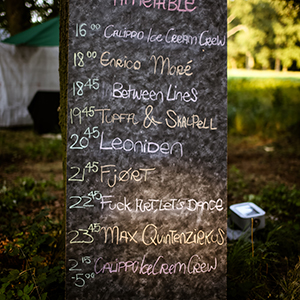 TIMETABLE
16:00 CALIPPO ICE CREAM CREW
18:00 ENRICO MORÉ
18:45 BETWEEN LINES
19:45 TUFFAL & SKALPELL
20:45 LEONIDEN
21:45 FJØRT
22:45 FUCK ART, LET'S DANCE
23:45 MAX QUINTENZIRKUS
2:15 -5:00 CALIPPO ICE CREAM CREW